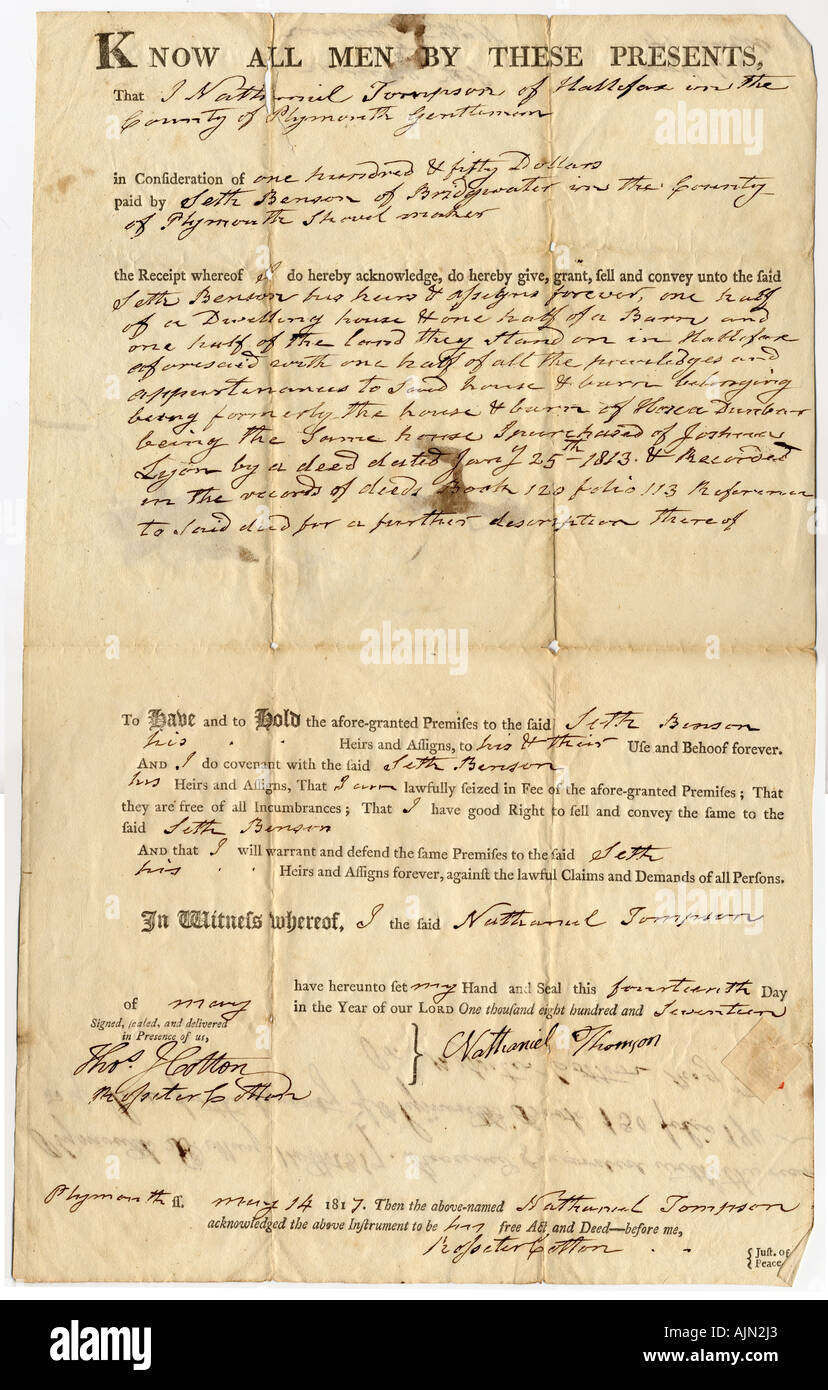 KNOW ALL MEN BY THESE PRESENTS,
That I Nathaniel Tompson of Hallifax in the
County of Plymouth Gentleman
in Conſideration of one hundred & fifty Dollars
paid by Seth Benson of Bridgwater in the County
of Plymouth Shovel maker
the Receipt whereof I do hereby acknowledge, do hereby give, grant, ſell and convey unto the ſaid
Seth Benson his heirs & assigns forever, one half
of a Dwelling house & one half of a Barn and
one half of the land they stand on in Hallifax
aforesaid with one half of all the priviledges and
appurtenances to said house & barn belonging
being formerly the house & barn of Hosea Dunbar
being the same house I purchased of Joshua
Lyon by a deed dated Jany 25th 1813. & Recorded
in the records of deeds Book 120 folio 113 Reference
to said deed for a further description thereof
To Have and to Hold the afore-granted Premiſes to the ſaid Seth Benson
his . . Heirs and Aſſigns, to his & their Uſe and Behoof forever.
AND I do covenant with the ſaid Seth Benson
his Heirs and Aſſigns, That I am lawfully ſeized in Fee of the afore-granted Premiſes; That
they are free of all Incumbrances; That I have good Right to ſell and convey the ſame to the
ſaid Seth Benson
AND that I will warrant and defend the ſame Premiſes to the ſaid Seth
his . . Heirs and Aſſigns forever, againſt the lawful Claims and Demands of all Perſons.
In Witneſs whereof, I the ſaid Nathaniel Tompson
have hereunto ſet my Hand and Seal this fourteenth Day
of may in the Year of our LORD One thouſand eight hundred and Seventeen
Signed, ſealed, and delivered
in Preſence of us,
Thos. J Cotton
Rosseter Cotton
Nathaniel Thomson
Plymouth ſſ. may 14 1817. Then the above-named Nathaniel Tompson
acknowledged the above Inſtrument to be his free Act and Deed—before me,
Rosseter Cotton . .
Juſt. of
Peace
alamy
Image ID: AJN2J3
www.alamy.com